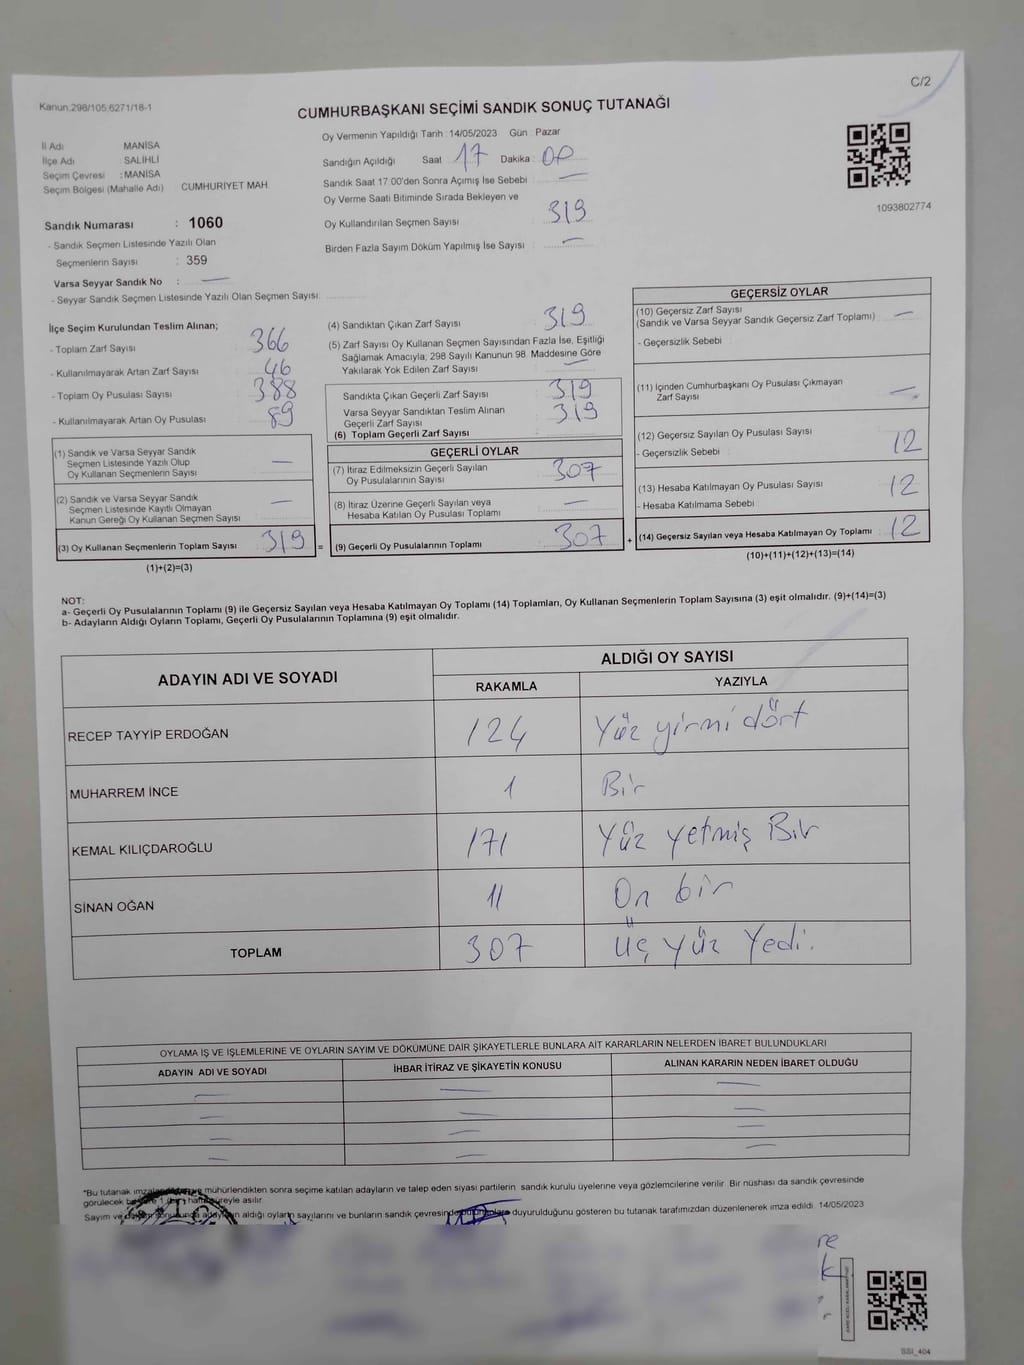 C/2
Kanun.298/105,6271/18-1
CUMHURBAŞKANI SEÇİMİ SANDIK SONUÇ TUTANAĞI
İl Adı MANİSA
İlçe Adı : SALİHLİ
Seçim Çevresi : MANİSA
Seçim Bölgesi (Mahalle Adı) CUMHURİYET MAH.
Sandık Numarası : 1060
- Sandık Seçmen Listesinde Yazılı Olan
Seçmenlerin Sayısı : 359
Varsa Seyyar Sandık No : —
- Seyyar Sandık Seçmen Listesinde Yazılı Olan Seçmen Sayısı:
Oy Vermenin Yapıldığı Tarih : 14/05/2023 Gün : Pazar
Sandığın Açıldığı Saat 17 Dakika : 00
Sandık Saat 17:00'den Sonra Açımış İse Sebebi : —
Oy Verme Saati Bitiminde Sırada Bekleyen ve
Oy Kullandırılan Seçmen Sayısı : 319
Birden Fazla Sayım Döküm Yapılmış İse Sayısı : —
1093802774
İlçe Seçim Kurulundan Teslim Alınan;
- Toplam Zarf Sayısı : 366
- Kullanılmayarak Artan Zarf Sayısı : 46
- Toplam Oy Pusulası Sayısı : 388
- Kullanılmayarak Artan Oy Pusulası : 89
(1) Sandık ve Varsa Seyyar Sandık
Seçmen Listesinde Yazılı Olup
Oy Kullanan Seçmenlerin Sayısı : —
(2) Sandık ve Varsa Seyyar Sandık
Seçmen Listesinde Kayıtlı Olmayan
Kanun Gereği Oy Kullanan Seçmen Sayısı : —
(3) Oy Kullanan Seçmenlerin Toplam Sayısı : 319 =
(1)+(2)=(3)
(4) Sandıktan Çıkan Zarf Sayısı : 319
(5) Zarf Sayısı Oy Kullanan Seçmen Sayısından Fazla İse, Eşitliği
Sağlamak Amacıyla; 298 Sayılı Kanunun 98. Maddesine Göre
Yakılarak Yok Edilen Zarf Sayısı : —
Sandıkta Çıkan Geçerli Zarf Sayısı : 319
Varsa Seyyar Sandıktan Teslim Alınan
Geçerli Zarf Sayısı : 319
(6) Toplam Geçerli Zarf Sayısı :
GEÇERLİ OYLAR
(7) İtiraz Edilmeksizin Geçerli Sayılan
Oy Pusulalarının Sayısı : 307
(8) İtiraz Üzerine Geçerli Sayılan veya
Hesaba Katılan Oy Pusulası Toplamı : —
(9) Geçerli Oy Pusulalarının Toplamı : 307 +
GEÇERSİZ OYLAR
(10) Geçersiz Zarf Sayısı
(Sandık ve Varsa Seyyar Sandık Geçersiz Zarf Toplamı) : —
- Geçersizlik Sebebi :
(11) İçinden Cumhurbaşkanı Oy Pusulası Çıkmayan
Zarf Sayısı : —
(12) Geçersiz Sayılan Oy Pusulası Sayısı : 12
- Geçersizlik Sebebi :
(13) Hesaba Katılmayan Oy Pusulası Sayısı : 12
- Hesaba Katılmama Sebebi :
(14) Geçersiz Sayılan veya Hesaba Katılmayan Oy Toplamı : 12
(10)+(11)+(12)+(13)=(14)
NOT:
a- Geçerli Oy Pusulalarının Toplamı (9) ile Geçersiz Sayılan veya Hesaba Katılmayan Oy Toplamı (14) Toplamları, Oy Kullanan Seçmenlerin Toplam Sayısına (3) eşit olmalıdır. (9)+(14)=(3)
b- Adayların Aldığı Oyların Toplamı, Geçerli Oy Pusulalarının Toplamına (9) eşit olmalıdır.
ADAYIN ADI VE SOYADI ALDIĞI OY SAYISI
RAKAMLA YAZIYLA
RECEP TAYYİP ERDOĞAN 124 Yüz yirmi dört
MUHARREM İNCE 1 Bir
KEMAL KILIÇDAROĞLU 171 Yüz Yetmiş Bir
SİNAN OĞAN 11 On bir
TOPLAM 307 Üç Yüz Yedi.
OYLAMA İŞ VE İŞLEMLERİNE VE OYLARIN SAYIM VE DÖKÜMÜNE DAİR ŞİKAYETLERLE BUNLARA AİT KARARLARIN NELERDEN İBARET BULUNDUKLARI
ADAYIN ADI VE SOYADI İHBAR İTİRAZ VE ŞİKAYETİN KONUSU ALINAN KARARIN NEDEN İBARET OLDUĞU
— — —
— — —
— — —
— — —
"Bu tutanak mühürlendikten sonra seçime katılan adayların ve talep eden siyasi partilerin sandık kurulu üyelerine veya gözlemcilerine verilir. Bir nüshası da sandık çevresinde
görülecek süreyle asılır.
Sayım ve aldığı oyların sayılarını ve bunların sandık çevresinde duyurulduğunu gösteren bu tutanak tarafımızdan düzenlenerek imza edildi. 14/05/2023
SSİ_404